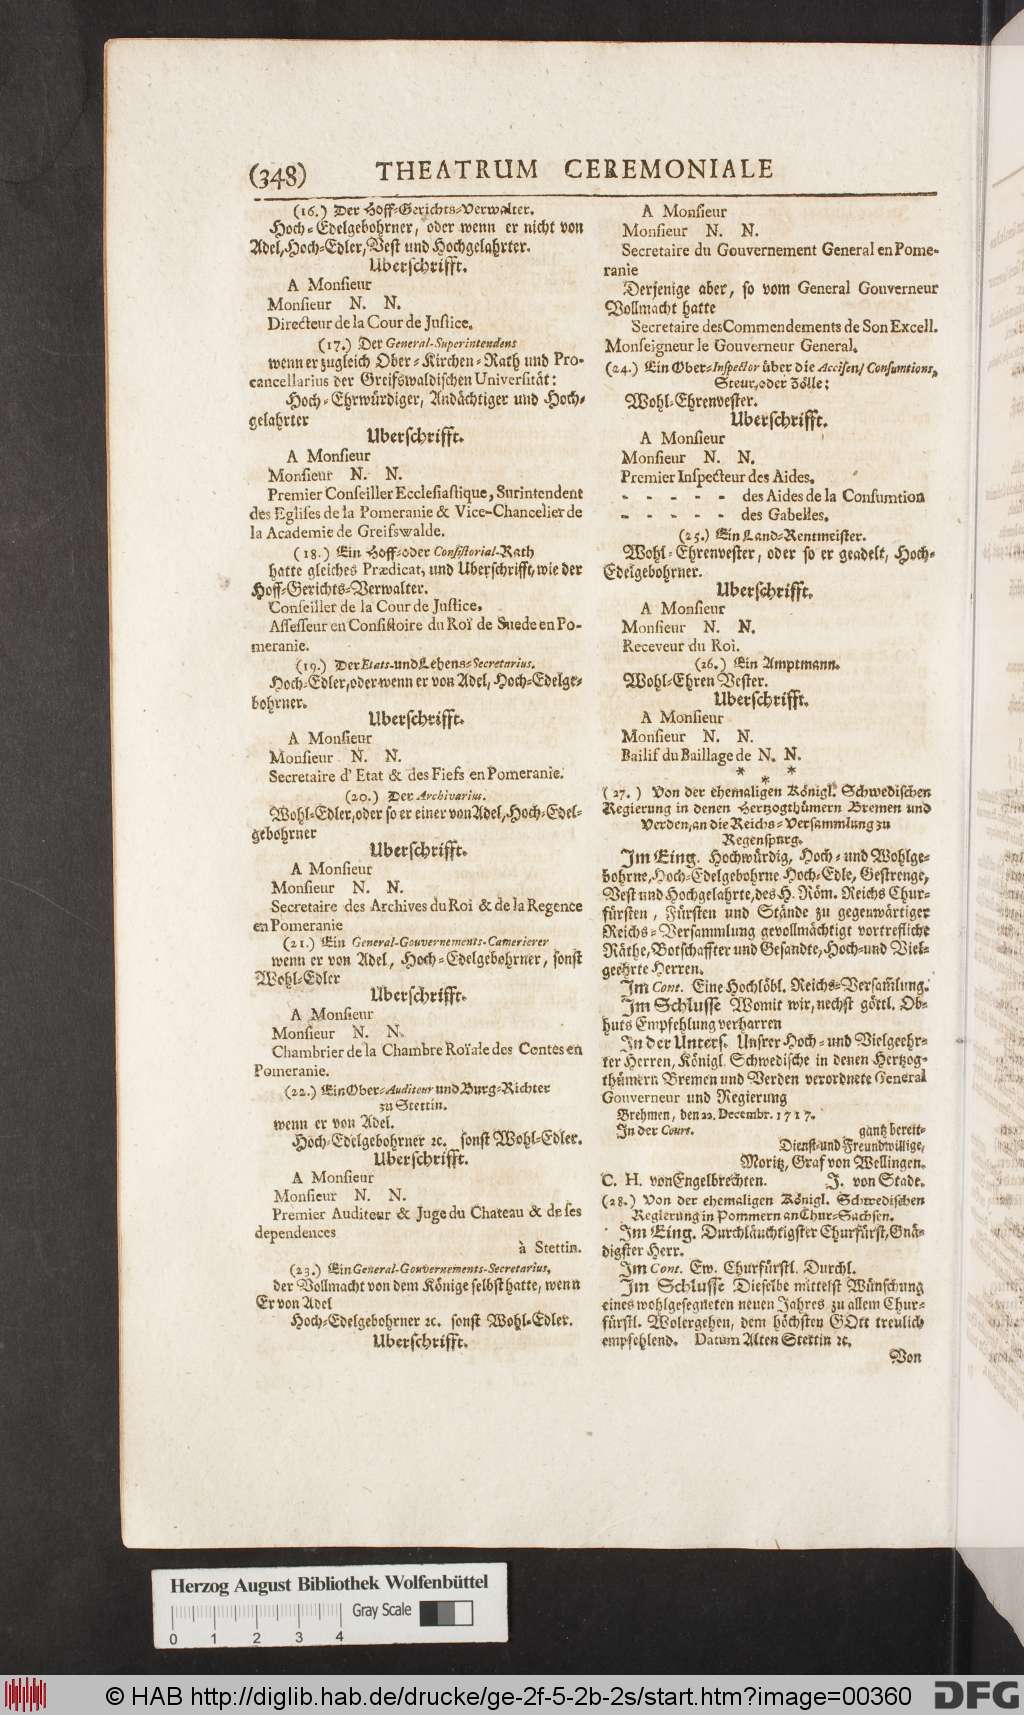 (348) THEATRUM CEREMONIALE
(16.) Der Hoff-Gerichts-Verwalter.
Hoch-Edelgebohrner, oder wenn er nicht von
Adel, Hoch-Edler, Vest und Hochgelahrter.
Uberschrifft.
A Monsieur
Monsieur N. N.
Directeur de la Cour de Justice.
(17.) Der General-Superintendens
wenn er zugleich Ober-Kirchen-Rath und Pro-
cancellarius der Greifswaldischen Universität:
Hoch-Ehrwürdiger, Andächtiger und Hoch-
gelahrter
Uberschrifft.
A Monsieur
Monsieur N. N.
Premier Conseiller Ecclesiastique, Surintendent
des Eglises de la Pomeranie & Vice-Chancelier de
la Academie de Greifswalde.
(18.) Ein Hoff-oder Consistorial-Rath
hatte gleiches Prædicat, und Uberschrifft, wie der
Hoff-Gerichts-Verwalter.
Conseiller de la Cour de Justice.
Assesseur en Consistoire du Roï de Suede en Po-
meranie.
(19.) Der Etats-und Lehens-Secretarius.
Hoch-Edler, oder wenn er von Adel, Hoch-Edelge-
bohrner.
Uberschrifft.
A Monsieur
Monsieur N. N.
Secretaire d' Etat & des Fiefs en Pomeranie.
(20.) Der Archivarius.
Wohl-Edler, oder so er einer von Adel, Hoch-Edel-
gebohrner
Uberschrifft.
A Monsieur
Monsieur N. N.
Secretaire des Archives du Roi & de la Regence
en Pomeranie
(21.) Ein General-Gouvernements-Camerierer
wenn er von Adel, Hoch-Edelgebohrner, sonst
Wohl-Edler
Uberschrifft.
A Monsieur
Monsieur N. N.
Chambrier de la Chambre Roïale des Contes en
Pomeranie.
(22.) Ein Ober-Auditeur und Burg-Richter
zu Stettin.
wenn er von Adel.
Hoch-Edelgebohrner ꝛc. sonst Wohl-Edler.
Uberschrifft.
A Monsieur
Monsieur N. N.
Premier Auditeur & Juge du Chateau & de ses
dependences
à Stettin.
(23.) Ein General-Gouvernements-Secretarius,
der Vollmacht von dem Könige selbst hatte, wenn
Er von Adel
Hoch-Edelgebohrner ꝛc. sonst Wohl-Edler.
Uberschrifft.
A Monsieur
Monsieur N. N.
Secretaire du Gouvernement General en Pome-
ranie
Derjenige aber, so vom General Gouverneur
Vollmacht hatte
Secretaire des Commendements de Son Excell.
Monseigneur le Gouverneur General.
(24.) Ein Ober-Inspector über die Accisen/ Consumtions,
Steur, oder Zölle:
Wohl-Ehrenvester.
Uberschrifft.
A Monsieur
Monsieur N. N.
Premier Inspecteur des Aides.
- - - - - des Aides de la Consumtion
- - - - - des Gabelles.
(25.) Ein Land-Rentmeister.
Wohl-Ehrenvester, oder so er geadelt, Hoch-
Edelgebohrner.
Uberschrifft.
A Monsieur
Monsieur N. N.
Receveur du Roi.
(26.) Ein Amptmann.
Wohl-Ehren Vester.
Uberschrifft.
A Monsieur
Monsieur N. N.
Bailif du Baillage de N. N.
* * *
(27.) Von der ehemaligen Königl. Schwedischen
Regierung in denen Hertzogthümern Bremen und
Verden, an die Reichs-Versammlung zu
Regenspurg.
Im Eing. Hochwürdig, Hoch- und Wohlge-
bohrne, Hoch-Edelgebohrne Hoch-Edle, Gestrenge,
Vest und Hochgelahrte, des H. Röm. Reichs Chur-
fürsten, Fürsten und Stände zu gegenwärtiger
Reichs-Versammlung gevollmächtigt vortrefliche
Räthe, Botschaffter und Gesandte, Hoch-und Viel-
geehrte Herren.
Im Cont. Eine Hochlöbl. Reichs-Versam̃lung.
Im Schlusse Womit wir, nechst göttl. Ob-
huts Empfehlung verharren
In der Unters. Unsrer Hoch- und Vielgeehr-
ter Herren, Königl. Schwedische in denen Hertzog-
thümern Bremen und Verden verordnete General
Gouverneur und Regierung
Brehmen, den 22. Decembr. 1717.
In der Court. gantz bereit-
Dienst-und Freundwillige,
Moritz, Graf von Wellingen.
C. H. von Engelbrechten. J. von Stade.
(28.) Von der ehemaligen Königl. Schwedischen
Regierung in Pommern an Chur-Sachsen.
Im Eing. Durchläuchtigster Churfürst, Gnä-
digster Herr.
Im Cont. Ew. Churfürstl. Durchl.
Im Schlusse Dieselbe mittelst Wünschung
eines wohlgesegneten neuen Jahres zu allem Chur-
fürstl. Wolergehen, dem höchsten GOtt treulich
empfehlend. Datum Alten Stettin ꝛc.
Von
Herzog August Bibliothek Wolfenbüttel
Gray Scale
0 1 2 3 4
© HAB http://diglib.hab.de/drucke/ge-2f-5-2b-2s/start.htm?image=00360 DFG